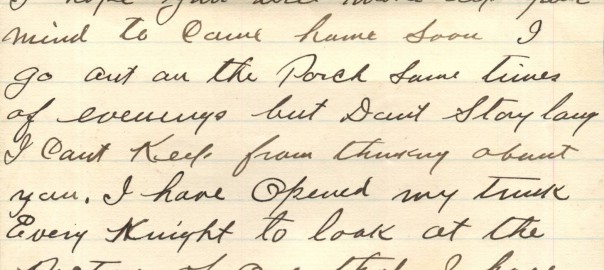 I hope you will make up your
mind to Come home soon I
go out on the Porch Some times
of evenings but Dont Stay long
I Cant Keep from thinking about
you. I have Opened my trunk
Every Knight to look at the
Picture of that I have